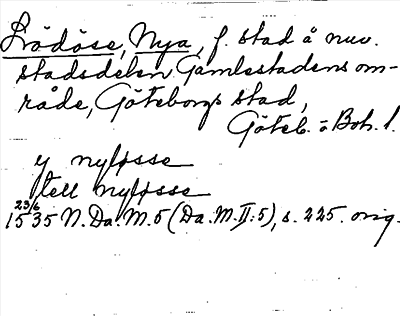 Lödöse, Nya, f. stad å nuv.
stadsdelen Gamlestadens om-
råde, Göteborgs stad,
Göteb. o Boh. l.
y nyløsse
tell nyløsse
23/6
1535 N. Da. M. 5 (Da. M. II: 5), s. 225. orig.